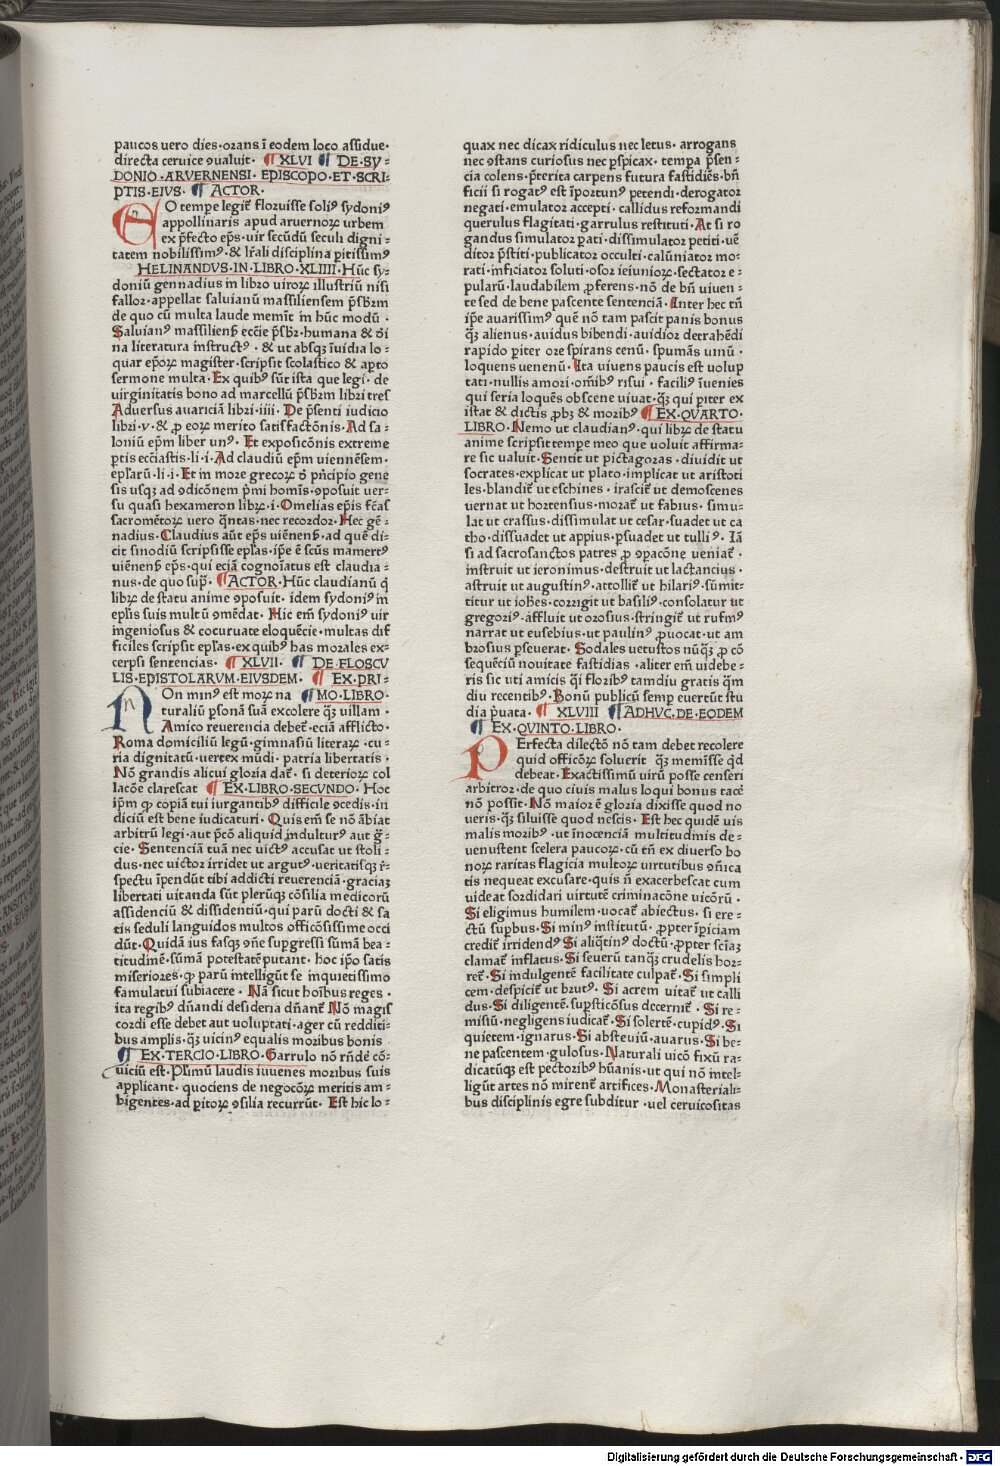 paucos uero dies·orans ī eodem loco assidue·
directa ceruice ꝯualuit· ¶ XLVI ¶ DE·SY⸗
DONIO·ARVERNENSI·EPISCOPO·ET·SCRI⸗
PTIS·EIVS· ¶ ACTOR·
EO tempe legit᷑ floruisse soliꝰ sydoniꝰ
appollinaris apud aruernoꝝ urbem
ex p̄fecto ep̄s·uir secūdū seculi digni⸗
tatem nobilissimꝰ·& lr̄ali disciplina ꝑitissimꝰ
HELINANDVS·IN·LIBRO·XLIIII·Hūc sy⸗
doniū gennadius in libro uiroꝝ illustriū nisi
fallor·appellat saluianū massiliensem p̄sbr̄m
de quo cū multa laude memīt in hūc modū·
Saluianꝰ massilienẜ ecc̄ie p̄sbr̄·humana & diui
na literatura īnstructꝰ·& ut absqꝫ īuidia lo⸗
quar ep̄oꝝ magister·scripsit scolastico & apto
sermone multa·Ex quibꝰ sūt ista que legi·de
uirginitatis bono ad marcellū p̄sbr̄m libri tres
Aduersus auariciā libri·iiii·De p̄senti iudicio
libri·v·& ꝓ eoꝝ merito satisfactōnis·Ad sa⸗
loniū ep̄m liber unꝰ·Et expositōnis extreme
ꝑtis ecc̄iastis·li·i·Ad claudiū ep̄m uiennēsem·
epl̄arū·li·i·Et in more grecoꝝ de pn̄cipio gene
sis usqꝫ ad ꝯdicōnem p̄mi homīs·ꝯposuit uer⸗
su quasi hexameron libꝝ·i·Omelias ep̄is fc̄as
sacromētoꝝ uero q̄ntas·nec recordor·Hec gē⸗
nadius·Claudius aūt ep̄s uiēnenẜ·ad quē di⸗
cit sinodiū scripsisse epl̄as·ip̄e ē sc̄us mamertꝰ
uiēnenẜ ep̄s·qui eciā cognoīatus est claudia⸗
nus·de quo sup̄· ¶ ACTOR·Hūc claudianū q̄
libꝝ de statu anime ꝯposuit·idem sydoniꝰ in
epl̄is suis multū ꝯmēdat·Hic em̄ sydoniꝰ uir
ingeniosus & cocuruate eloquēcie·multas dif
ficiles scripsit epl̄as·ex quibꝰ has morales ex⸗
cerpsi sentencias· ¶ XLVII· ¶ DE·FLOSCV
LIS·EPISTOLARVM·EIVSDEM· ¶ EX·PRI⸗
NOn minꝰ est moꝝ na ¶ MO·LIBRO·
turaliū ꝑsonā suā excolere qꝫ uillam·
Amico reuerencia debet᷑·eciā afflicto·
Roma domiciliū legū·gimnasiū literaꝝ·cu⸗
ria dignitatū·uertex mūdi·patria libertatis·
Nō grandis alicui gloria dat᷑·si deterioꝝ col
lacōe clarescat ¶ EX·LIBRO·SECVNDO·Hoc
ip̄m ꝙ copiā tui iurgantibꝰ difficile ꝯcedis·in
diciū est bene iudicaturi·Quis em̄ se nō ābiat
arbitrū legi·aut p̄cō aliquid indulturꝰ aut ḡ⸗
cie·Sentenciā tuā nec uictꝰ accusat ut stoli⸗
dus·nec uictor irridet ut argutꝰ·ueritatisqꝫ r̄⸗
spectu īpendūt tibi addicti reuerenciā·gracias
libertati uitanda sūt plerūqꝫ cōsilia medicorū
assidenciū & dissidentiū·qui parū docti & sa
tis seduli languidos multos officōsissime occi
dūt·Quidā ius fasqꝫ oн̄e supgressi sūmā bea⸗
titudinē·sūmā potestatē putant·hoc ip̄o satis
miseriores·ꝙ parū intelligūt se inquietissimo
famulatui subiacere·Nā sicut hoībus reges·
ita regibꝰ dn̄andi desideria dn̄ant᷑ Nō magis
cordi esse debet aut uoluptati·ager cū redditi⸗
bus amplis·qꝫ uicinꝰ equalis moribus bonis
¶ EX·TERCIO·LIBRO·Garrulo nō rn̄det᷑ cō⸗
uiciū est·Plimū laudis iuuenes moribus suis
applicant·quociens de negocōꝝ meritis am⸗
bigentes·ad ꝑitoꝝ ꝯsilia recurrūt·Est hic lo⸗
quax nec dicax ridiculus nec letus·arrogans
nec ꝯstans curiosus nec ꝑspicax·tempa p̄sen⸗
cia colens·p̄terita carpens futura fastidiēs·bn̄
ficii si rogatꝰ est īportunꝰ petendi·derogator
negati·emulator accepti·callidus reformandi
querulus flagitati·garrulus restituti·At si ro
gandus simulator ꝑati·dissimulator petiti·uē
ditor p̄stiti·publicator occulti·calūniator mo⸗
rati·inficiator soluti·osor ieiunioꝝ·sectator e⸗
pularū·laudabilem ꝓferens·nō de bn̄ uiuen⸗
te sed de bene pascente sentenciā·Inter hec tn̄
ip̄e auarissimꝰ quē nō tam pascit panis bonus
qꝫ alienus·auidus bibendi·auidior detrahēdi
rapido ꝑiter ore spirans cenū·spumās uinū·
loquens uenenū·Ita uiuens paucis est volup
tati·nullis amori·om̄ibꝰ risui·faciliꝰ īuenies
qui seria loquēs obscene uiuat·qꝫ qui ꝑiter ex
istat & dictis ꝓbꝫ & moribꝰ ¶ EX·QVARTO·
LIBRO·Nemo ut claudianꝰ·qui libꝝ de statu
anime scripsit tempe meo que uoluit affirma⸗
re sic ualuit·Sentit ut pictagoras·diuidit ut
socrates·explicat ut plato·implicat ut aristoti
les·blandit᷑ ut eschines·irascit᷑ ut demoscenes
uernat ut hortensius·morat᷑ ut fabius·simu⸗
lat ut crassus·dissimulat ut cesar·suadet ut ca
tho·dissuadet ut appius·ꝑsuadet ut tulliꝰ·Iā
si ad sacrosanctos patres ꝓ ꝯpacōne ueniat᷑·
instruit ut ieronimus·destruit ut lactancius·
astruit ut augustinꝰ·attollit᷑ ut hilariꝰ·sūmit⸗
titur ut ioh̄es·corrigit ut basiliꝰ·consolatur ut
gregoriꝰ·affluit ut orosius·stringit᷑ ut rufinꝰ
narrat ut eusebius·ut paulinꝰ ꝓuocat·ut am
brosius ꝑseuerat·Sodales uetustos nūqꝫ ꝓ cō
sequēciū nouitate fastidias·aliter em̄ uidebe⸗
ris sic uti amicis q̄i floribꝰ tamdiu gratis q̄m
diu recentibꝰ·Bonū publicū semp euertūt stu
dia p̄uata· ¶ XLVIII ¶ ADHVC·DE·EODEM
¶ EX·QVINTO·LIBRO·
PErfecta dilectō nō tam debet recolere
quid officōꝝ soluerit qꝫ meminisse q̄d
debeat·Exactissimū uirū posse censeri
arbitror·de quo ciuis malus loqui bonus tacē
nō possit·Nō maior ē gloria dixisse quod no
ueris·qꝫ siluisse quod nescis·Est hec quidē uis
malis moribꝰ·ut īnocenciā multitudinis de⸗
uenustent scelera paucoꝝ·cū tn̄ ex diuerso bo
noꝝ raritas flagicia multoꝝ uirtutibus ꝯn̄ica
tis nequeat excusare·quis n̄ exacerbescat cum
uideat sordidari uirtutē criminacōne uicōrū·
Si eligimus humilem·uocat᷑ abiectus·si ere⸗
ctū supbus·Si minꝰ institutū·ꝓpter īpiciam
credit᷑ irridendꝰ Si aliq̄tinꝰ doctū·ꝓpter sciaꝫ
clamat᷑ inflatus·Si seuerū tanqꝫ crudelis hor⸗
ret᷑·Si indulgentē facilitate culpat᷑·Si simpli
cem·despicit᷑ ut brutꝰ·Si acrem uitat᷑ ut calli
dus·Si diligentē·supsticōsus decernit᷑·Si re⸗
misiū·negligens iudicat᷑·Si solertē·cupidꝰ·Si
quietem·ignarus·Si absteuiū·auarus·Si be⸗
ne pascentem·gulosus·Naturali uicō fixū ra⸗
dicatūqꝫ est pectoribꝰ hūanis·ut qui nō intel⸗
ligūt artes nō mirent᷑ artifices·Monasteriali⸗
bus disciplinis egre subditur·uel ceruicositas
Digitalisierung gefördert durch die Deutsche Forschungsgemeinschaft - DFG